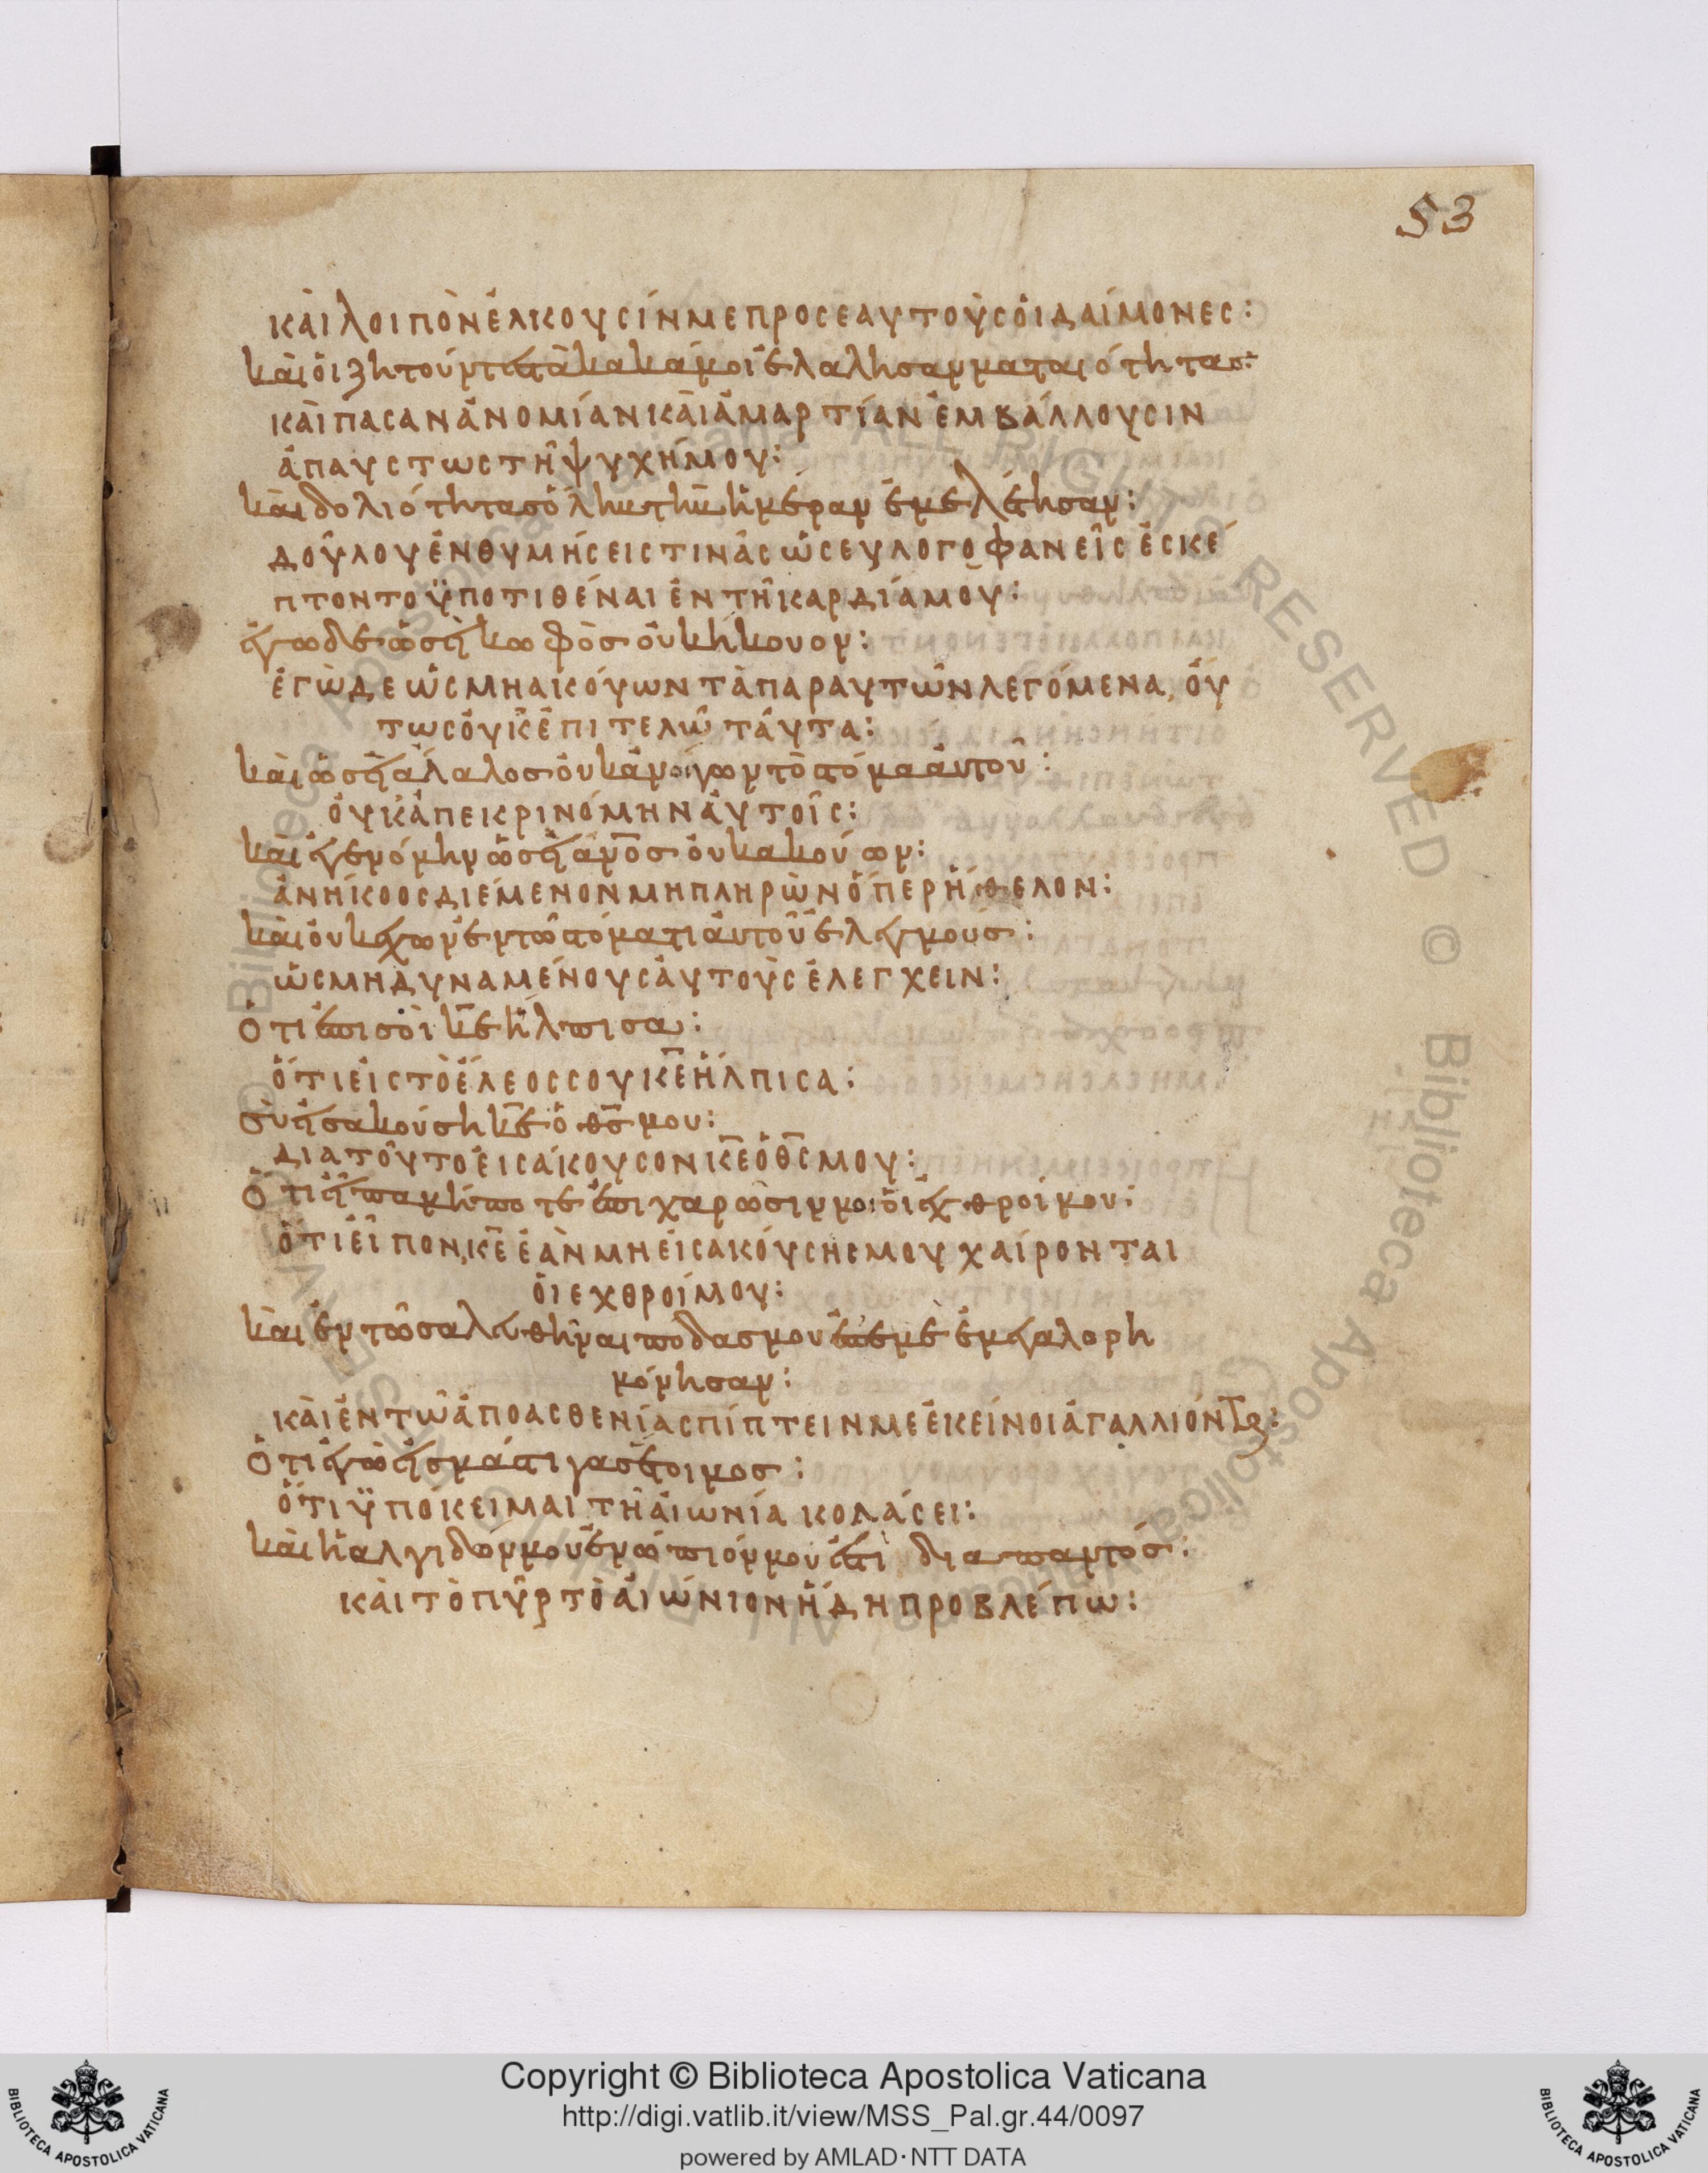 53
καὶ λοιπὸν ἕλκουσίν με προς ἑαυτοὺς ὁι δαίμονες:
καὶ ὁι ζητούντες τὰ κακά μοι ἐλαλησαν ματαιότητας:
καὶ πασαν ἀνομίαν καὶ ἁμαρτίαν ἐμβάλλουσιν
ἀπαυστως τῆ ψυχή μου:
καὶ δολιότητας ὅλην τὴν ἡμέραν ἐμελέτησαν:
δούλου ἐνθυμήσεις τινὰς ὡς ευλογοφανεῖς ἐσκέ
πτοντο ϋποτιθέναι ἐν τῆ καρδία μου:
ἐγω δε ὡσεὶ κωφὸς ὀυκ ήκουον:
ἐγὼ δε ὡς μη ακούων τὰ παρ αυτῶν λεγόμενα, ὅυ
τως ὀυκ ἐπιτελῶ ταῦτα:
καὶ ὡσεὶ ἄλαλος ὀυκ ἀνοίγων τὸ στόμα ἀυτοῦ:
ὀυκ ἀπεκρινόμην ἀυτοῖς:
καὶ ἐγενόμην ὡσεὶ ἀν̅ο̅ς ὀυκ ακούων:
ἀνήκοος διέμενον μη πληρὼν ὅπερ ἤθελον:
καὶ ὀυκ ἔχων ἐν τῶ στόματι ἀυτοῦ ἐλεγμούς:
ὡς μη δυναμένους ἀυτοὺς ἐλεγχειν:
Ὅτι ἐπι σοὶ κ̅ε̅ ἤλπισα:
ὅτι εἰς τὸ ἔλεος σου κ̅ε̅ ἤλπισα:
σὺ εἰσακούση κ̅ε̅ ὁ θ̅ς̅ μου:
δια τοῦτο εἰσάκουσον κ̅ε̅ ὁ θ̅ς̅ μου:
Ὅτι εἶπα μήποτε ἐπιχαρῶσιν μοι ὁι ἐχθροί μου:
ὅτι εἶπον, κ̅ε̅ ἐὰν μη εἰσακούσης μου χαίρονται
ὁι εχθροί μου:
καὶ ἐν τῶ σαλευθῆναι ποδας μου ἐπ' ἐμὲ ἐμεγαλορη
μόνησαν:
καὶ ἐν τῶ ἀπο ασθενίας πίπτειν με ἐκείνοι ἀγαλλιόνται:
Ὅτι ἐγὼ εἰς μάστιγας ἕτοιμος:
ὅτι ϋπόκειμαι τῆ αἰωνία κολάσει:
καὶ ἡ αλγιδών μου ἐνώπιόν μου ἐστὶ διαπαντός:
καὶ τὸ πῦρ τὸ αἰώνιον ἤδη προβλέπω:
Copyright © Biblioteca Apostolica Vaticana
http://digi.vatlib.it/view/MSS_Pal.gr.44/0097
powered by AMLAD·NTT DATA
BIBLIOTECA APOSTOLICA VATICANA
BIBLIOTECA APOSTOLICA VATICANA